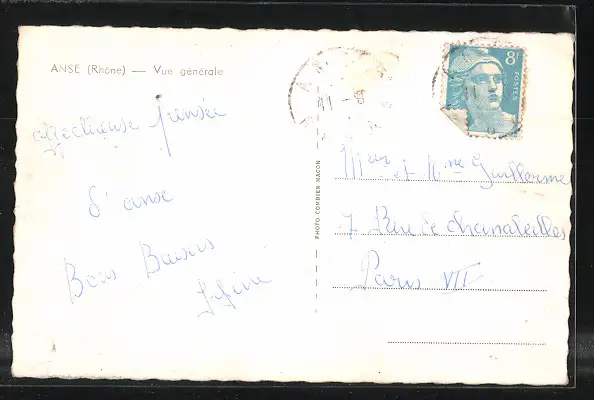 ANSE (Rhône) — Vue générale
affectueuse pensée
d'anse
Bons Baisers
PHOTO COMBIER MACON
8F
POSTES
Mr et Mme Guillerme
7 Rue de Chanaleilles
Paris VII